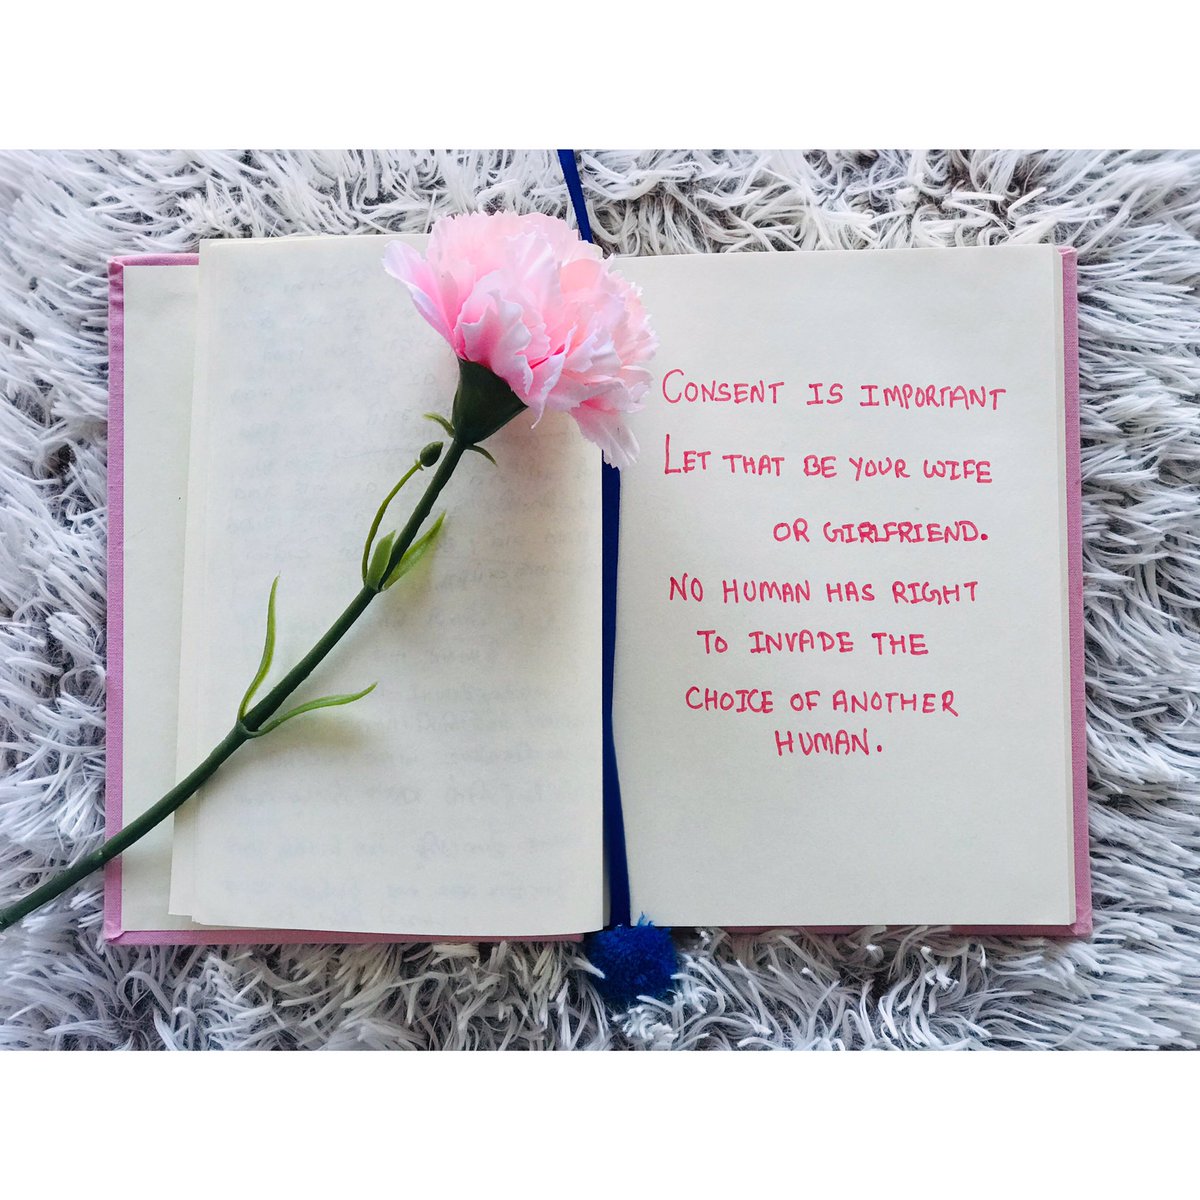 CONSENT IS IMPORTANT
LET THAT BE YOUR WIFE
OR GIRLFRIEND.
NO HUMAN HAS RIGHT
TO INVADE THE
CHOICE OF ANOTHER
HUMAN.